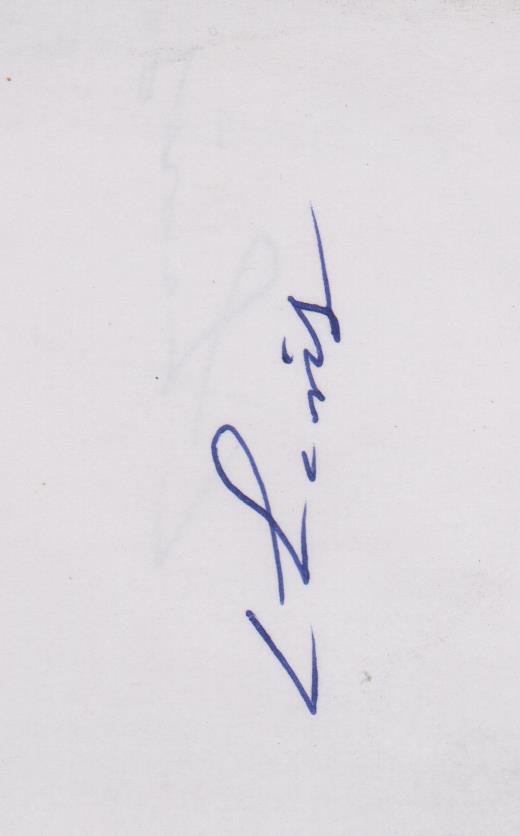 L Lewis